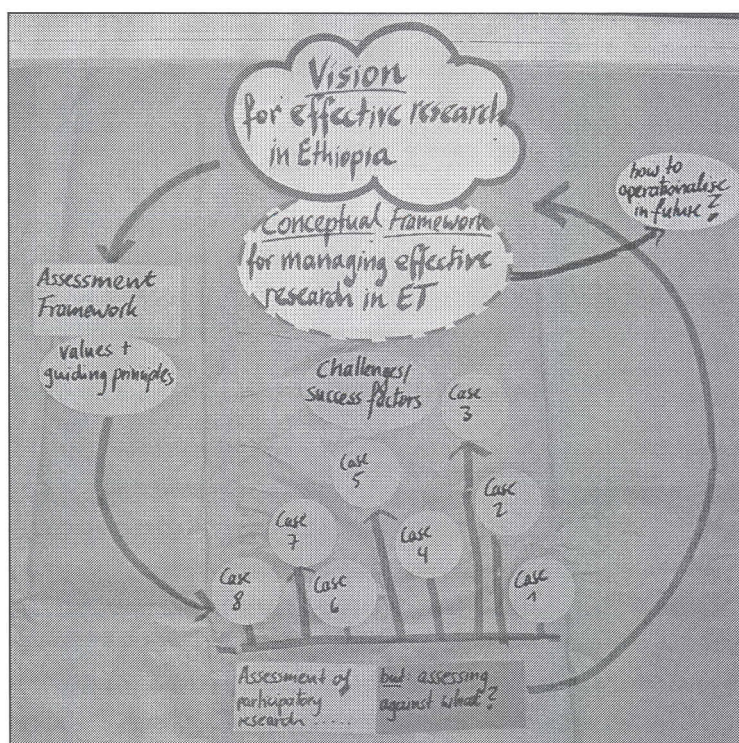 Vision
for effective research
in Ethiopia
Conceptual Framework
for managing effective
research in ET
how to
operationalise
in future?
Assessment
Framework
values +
guiding principles
Challenges/
success factors
Case
3
Case
5
Case
2
Case
7
Case
4
Case
8
Case
6
Case
1
Assessment of
participatory
research.....
but: assessing
against what?